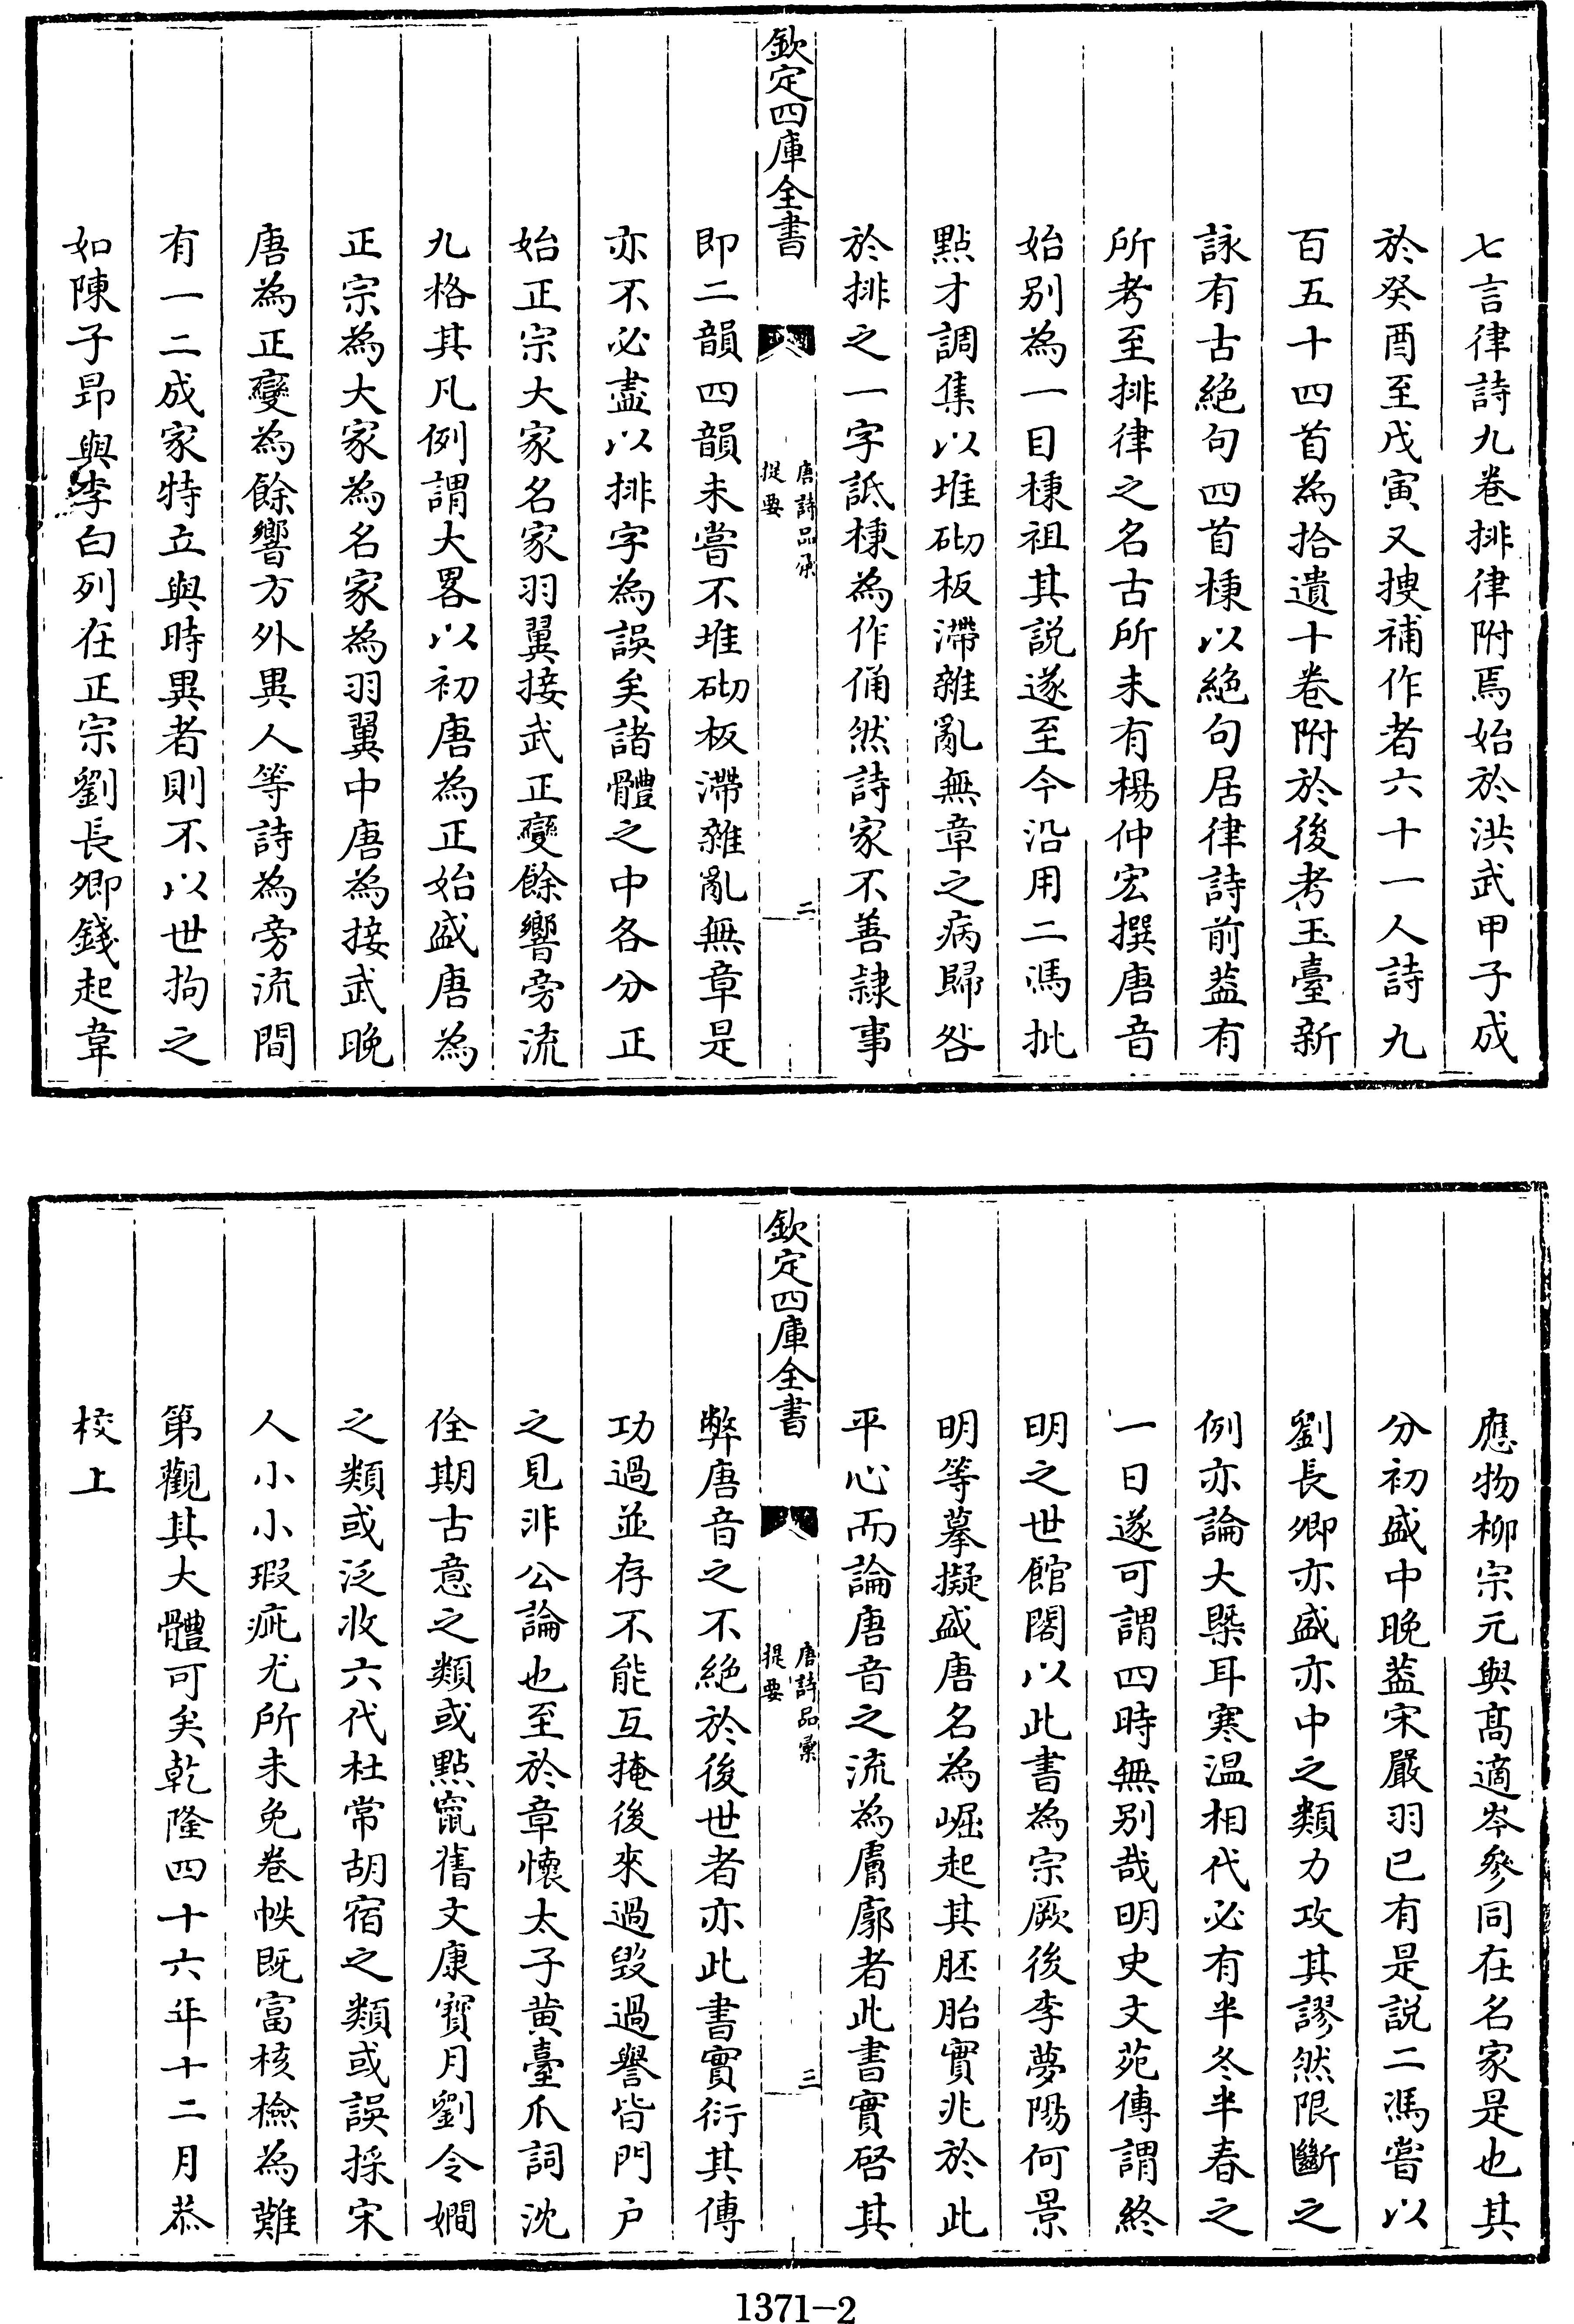 七言律詩九卷排律附焉始於洪武甲子成
於癸酉至戊寅又搜補作者六十一人詩九
百五十四首為拾遺十卷附於後考玉臺新
詠有古絶句四首棅以絶句居律詩前葢有
所考至排律之名古所未有楊仲宏撰唐音
始别為一目棅祖其說遂至今沿用二馮批
點才調集以堆砌板滯雜亂無章之病歸咎
於排之一字詆棅為作俑然詩家不善隷事
欽定四庫全書
唐詩品彙
提要
二
即二韻四韻未嘗不堆砌板滯雜亂無章是
亦不必盡以排字為誤矣諸體之中各分正
始正宗大家名家羽翼接武正變餘響旁流
九格其凡例謂大畧以初唐為正始盛唐為
正宗為大家為名家為羽翼中唐為接武晚
唐為正變為餘響方外異人等詩為旁流間
有一二成家特立與時異者則不以世拘之
如陳子昂與李白列在正宗劉長卿錢起韋
應物柳宗元與髙適岑參同在名家是也其
分初盛中晚葢宋嚴羽已有是說二馮嘗以
劉長卿亦盛亦中之類力攻其謬然限斷之
例亦論大槩耳寒温相代必有半冬半春之
一日遂可謂四時無别哉明史文苑傳謂終
明之世館閣以此書為宗厥後李夢陽何景
明等摹擬盛唐名為崛起其胚胎實兆於此
平心而論唐音之流為膚廓者此書實啓其
欽定四庫全書
唐詩品彙
提要
三
弊唐音之不絶於後世者亦此書實衍其傳
功過並存不能互掩後來過毁過譽皆門户
之見非公論也至於章懷太子黄臺爪詞沈
佺期古意之類或點竄舊文康寳月劉令嫺
之類或泛收六代杜常胡宿之類或誤採宋
人小小瑕疵尤所未免卷帙既富核檢為難
第觀其大體可矣乾隆四十六年十二月恭
校上
1371-2